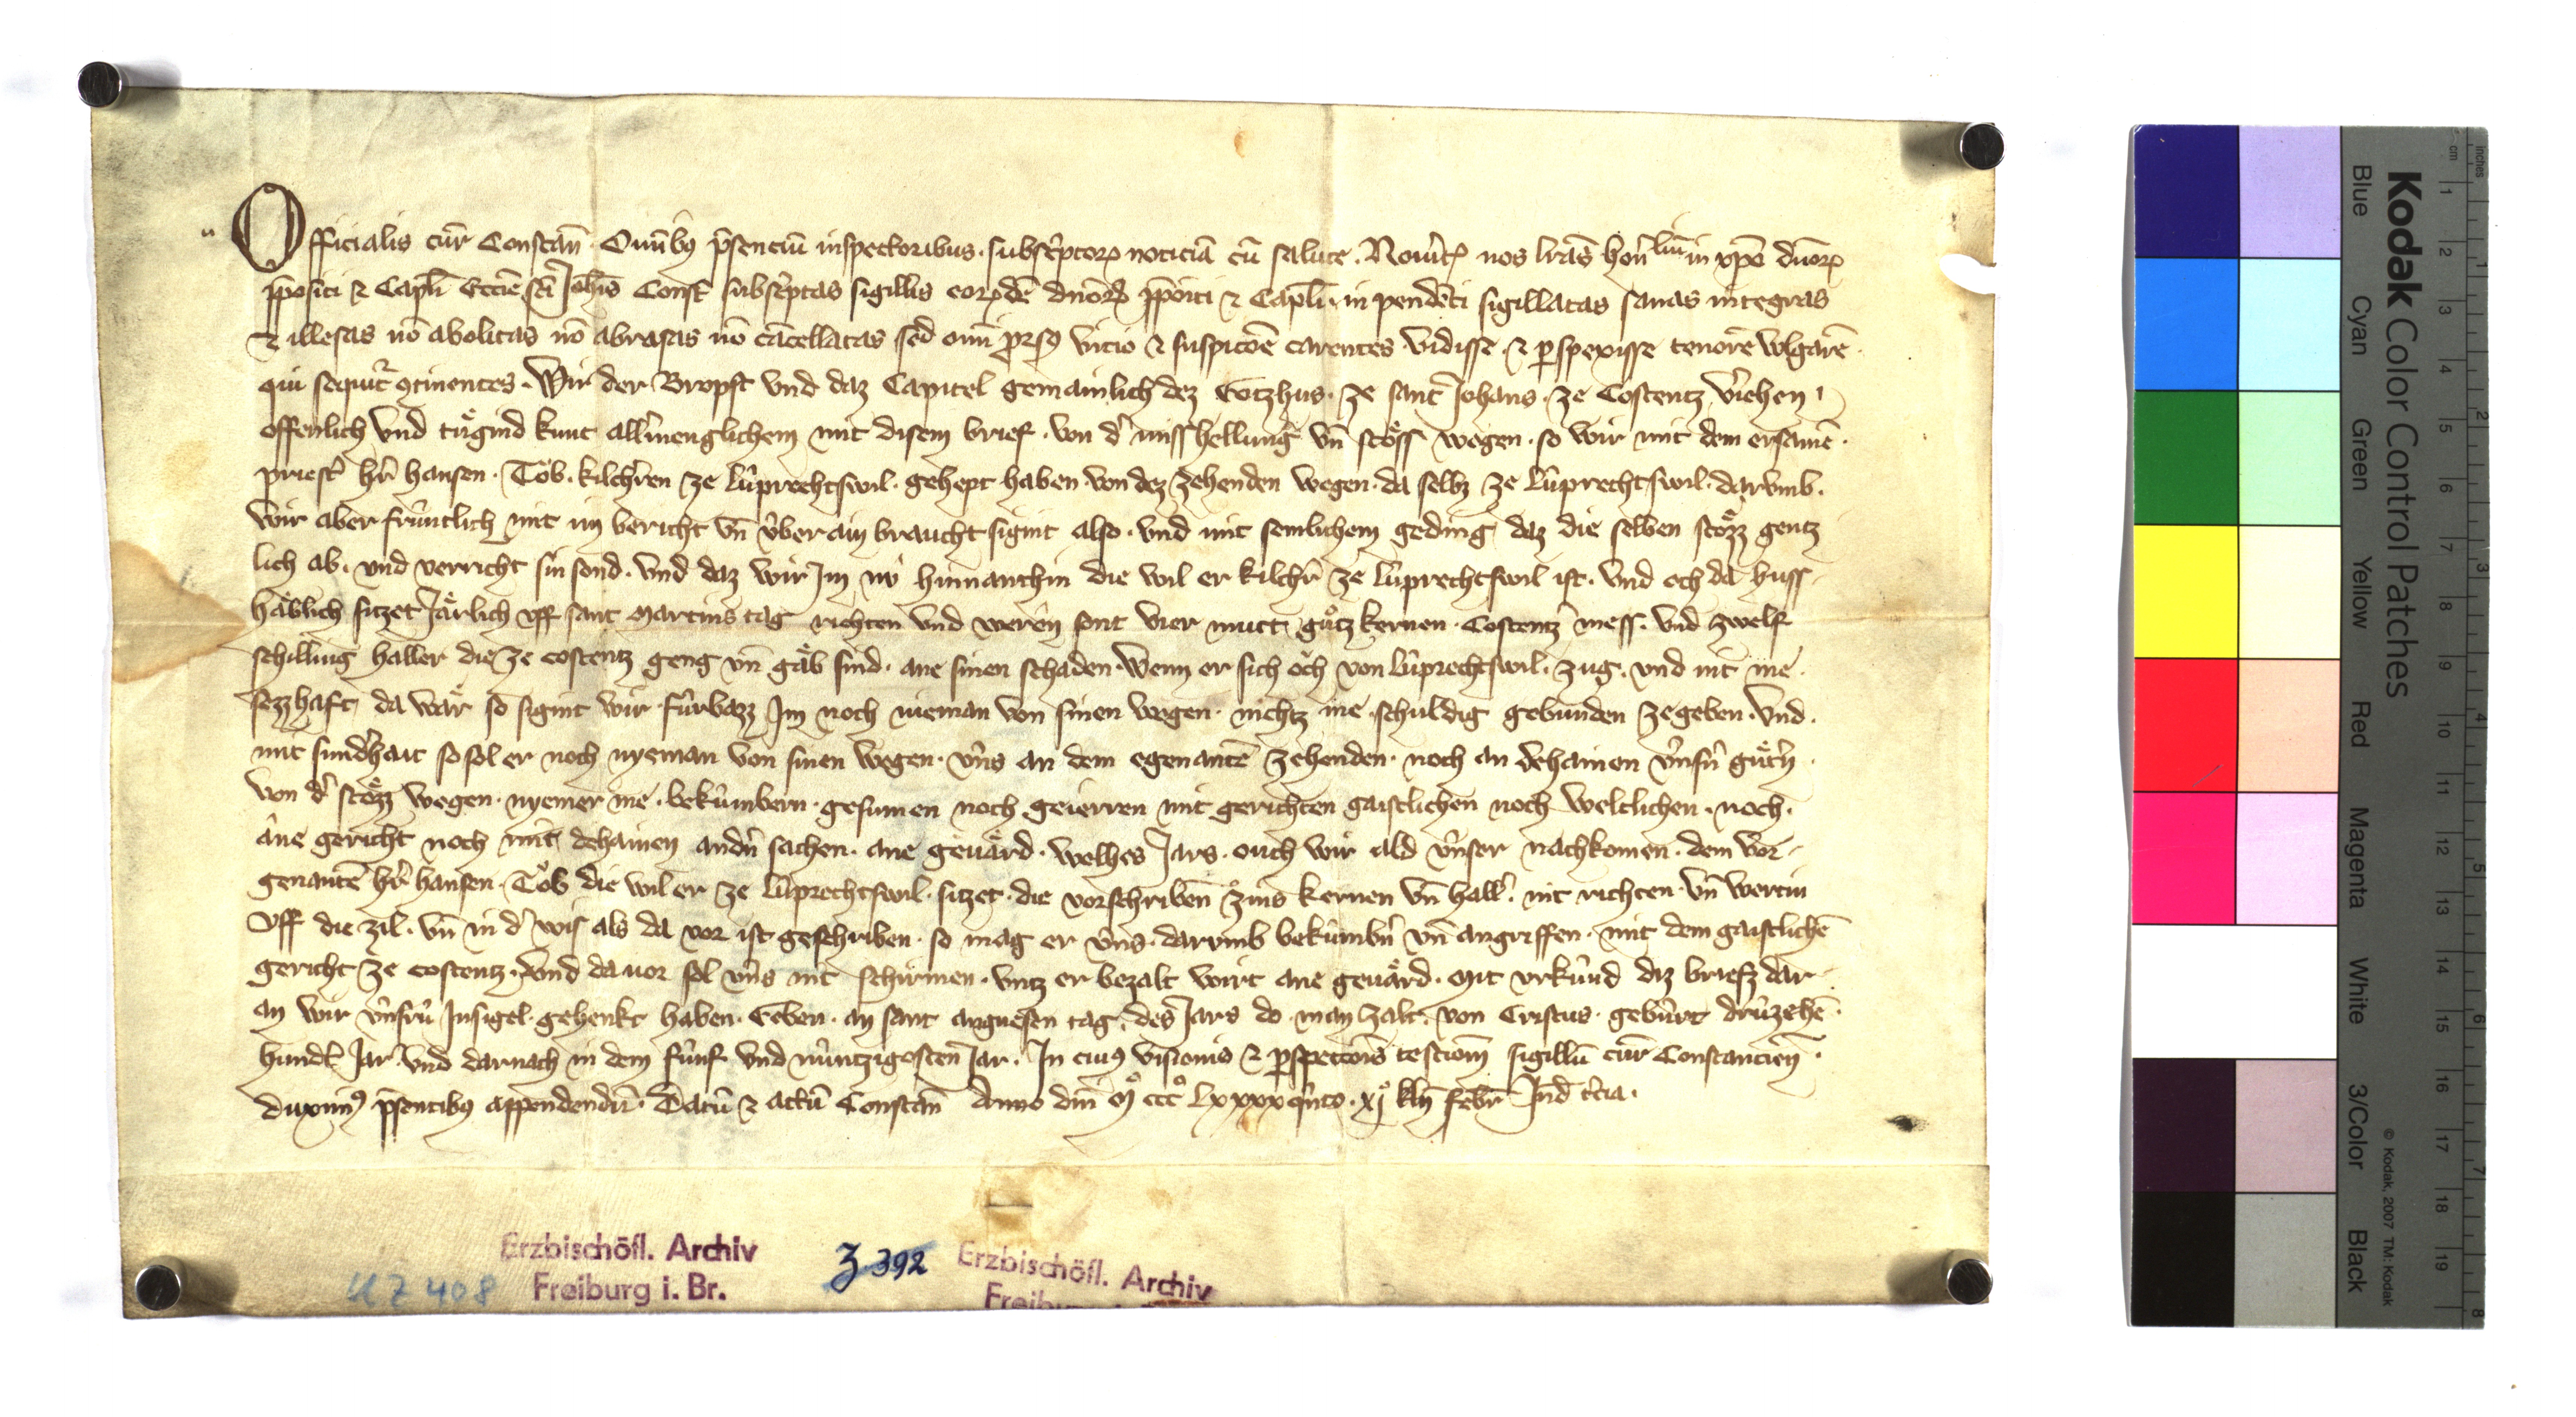 Officialis cur̄ Constan̄. Omībꝫ p̄senciū inspectoribus. subscͥptorꝝ noticiā cū salute. Nouͥtꝭ nos lr̄as hon̄liū in xp̄o dn̄orꝝ
p̄positi ⁊ Capl̄i Eccīe scī Joh̄is Const̄ subscͥptas sigillis eorꝝdē dn̄orꝝ p̄pōiti ⁊ Capl̄i. in pendēti sigillatas sanas integras
⁊ illesas nō abolitas nō abrasas nō cācellatas sed om̄i prorsꝫ vicio ⁊ suspicōe carentes vidisse ⁊ ꝑspexisse tenorē wlgarē.
qui sequit̄ ꝯtinentes. Wir der Bropst vnd daz Capitel gemainlich dez Gotzhus. ze sant Johans. ze Costentz v̓iehen
offenlich vnd tuͤgind kunt allm̓englichem mit disem brief. von d̓ misshellung vn̄ stoͤss wegen. so wir mit dem ersamē.
priest̓ hr̄ hansen. Tob. kilchr̄en ze Lúprechtswil. gehept haben. von dez zehenden wegen. da selbz ze Lúprechtswil. darvmb.
wir aber frúntlich mit im bericht vn̄ v́ber ain braucht sigint also. vnd mit semlichem geding daz die selben stoͤzz gentz
lich ab. vnd verricht sin sond. vnd daz wir Jm nv́ hinnanthin die wil er kilchr̄ ze Lúprechtswil ist. vnd och da huss
haͤblich sitzet Jaͤrlich vff sant Martins tag richten vnd weren sont vier mutt guͦtz kernen. Costentz mess. vnd zwelf
schilling haller die ze costentz geng vn̄ gaͤb sind. ane sinen schaden. Wenn er sich och von Lúprechtswil. zug. vnd nit me.
sezzhaft da waͤr so sigint wir fúrbazz Jm noch nieman von sinen wegen. nichtz me schuldig gebunden ze geben. vnd.
mit sundͦhait so sol er noch nyeman von sinen wegen. v́ns an dem egenantē zehenden. noch an dehainen v́nsn̄ guͤtn̄.
von d̓ stoͤzz wegen. nyemer me. bekúmbern. gesumen noch geierren mit gerichten gaistlichen noch weltlichen. noch.
âne gericht noch mit dehainen andn̓ sachen. ane geuaͤrd. welhes Jars. ouch wir ald v́nser nachkomen. dem vor
genantē hr̄ hansen. Tob die wil er ze Lúprechtswil. sitzet. die vorschriben zins kernen vn̄ hall̓. nit richten. vn̄ wertin
vff die zil. vn̄ in d̓ wis als da vor ist geschriben. so mag er v́ns. darvmb bekúmbn̓ vn̄ angriffen. mit dem gaistlichē
gericht ze costentz. vnd da uor sol v́ns nit schirmen. vntz er bezalt wirt ane geuaͤrd. Mit vrkúnd diz briefz dar
an wir v́nsrú Jnsigel. gehenkt haben. Geben. an sant angnesen tag. des Jars do man zalt. von Cristus. gebúrt drúzehē.
hundt̓ Jar vnd darnach in dem fúnf vnd núntzigosten Jar. In cuiꝫ visionis ⁊ ꝑspectōis testiom̄ sigillū cur̄ Constancien̄.
duximꝫ p̄sentibꝫ appendendū. Datū ⁊ actū Constan̄ Anno dn̄i Mͦ cccͦ Lxxxxqͥnto. xjͦ kln̄ febr̄ Jnd̄ tc̓ia.
Erzbischöfl. Archiv
Freiburg i. Br.
Z 392
UZ 408
Erzbischöfl. Archiv
Kodak Color Control Patches
Blue Cyan Green Yellow Red Magenta White 3/Color Black
© Kodak, 2007 TM: Kodak
cm 1 2 3 4 5 6 7 8 9 10 11 12 13 14 15 16 17 18 19
inches 1 2 3 4 5 6 7 8